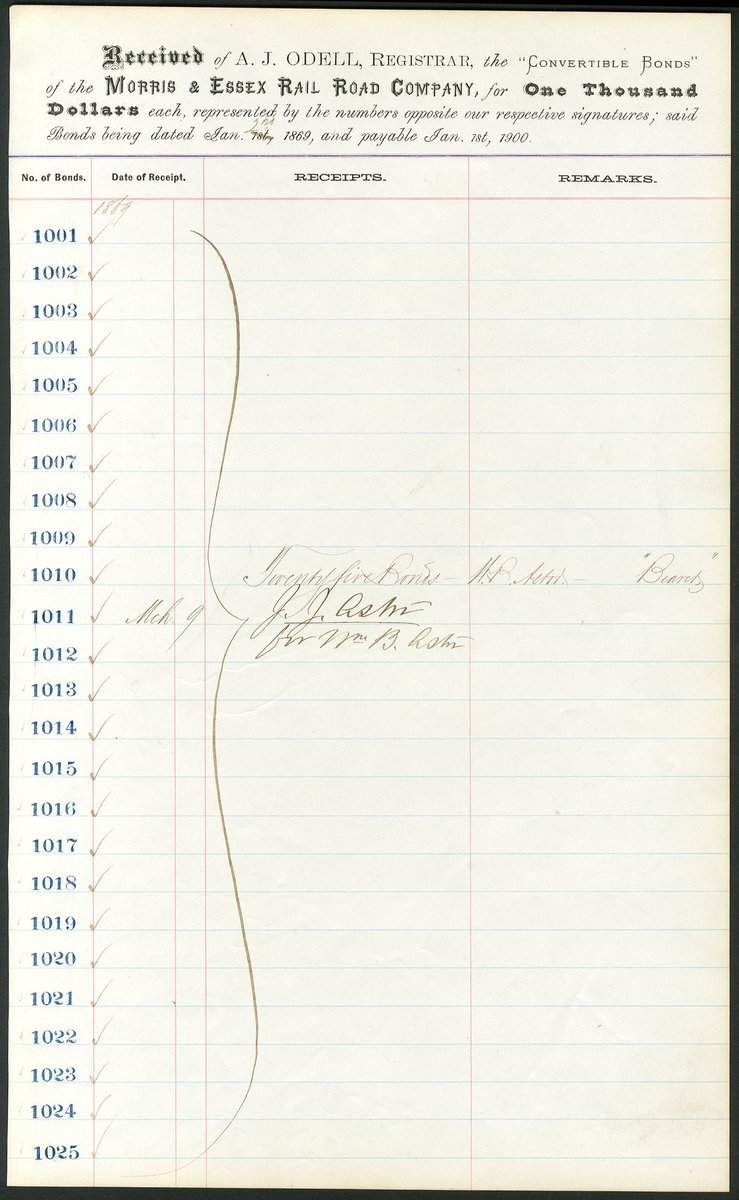 Received of A. J. ODELL, REGISTRAR, the "CONVERTIBLE BONDS"
of the MORRIS & ESSEX RAIL ROAD COMPANY, for One Thousand
Dollars each, represented by the numbers opposite our respective signatures; said
Bonds being dated Jan. 1st, 1869, and payable Jan. 1st, 1900.
No. of Bonds. Date of Receipt. RECEIPTS. REMARKS.
1869
1001
1002
1003
1004
1005
1006
1007
1008
1009
1010 Twenty five Bonds. — W. B. Astor — "Bearer"
1011 Mch. 9 J. J. Astor
1012 for Wm B. Astor
1013
1014
1015
1016
1017
1018
1019
1020
1021
1022
1023
1024
1025